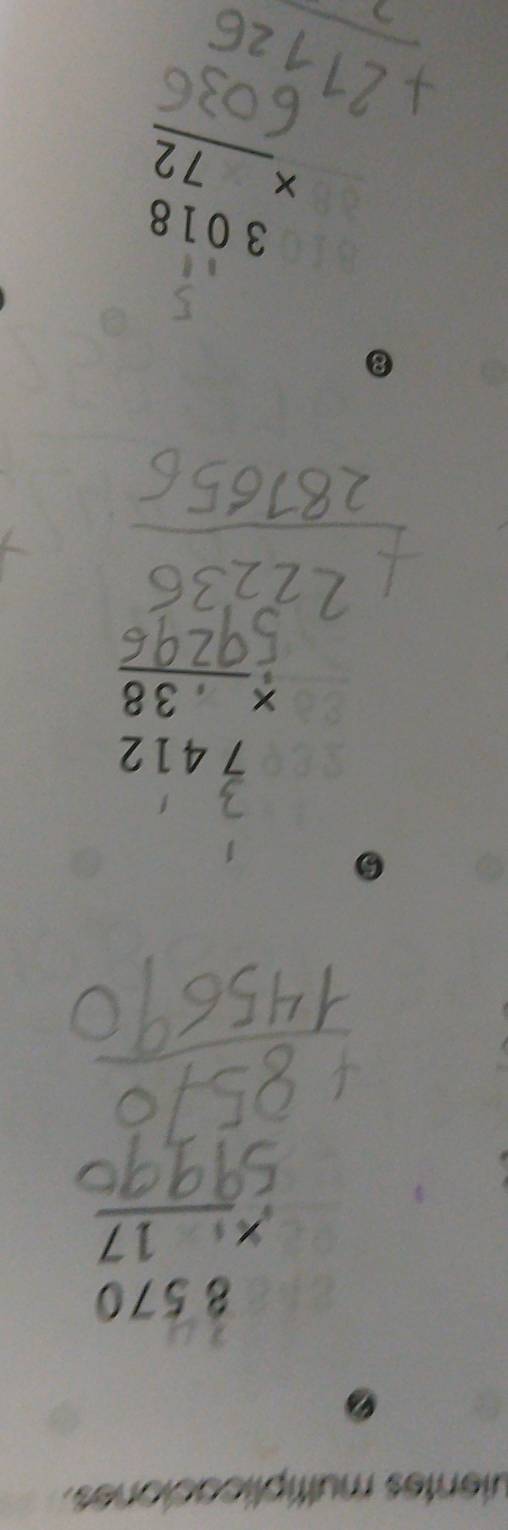 uientes multiplicaciones.
2
34
8 570
x 17
59990
+ 8570
145690
5
1
3 1
7 412
x 38
59296
+ 22236
281656
8
5
1 1
3 018
x 72
6036
+ 21126